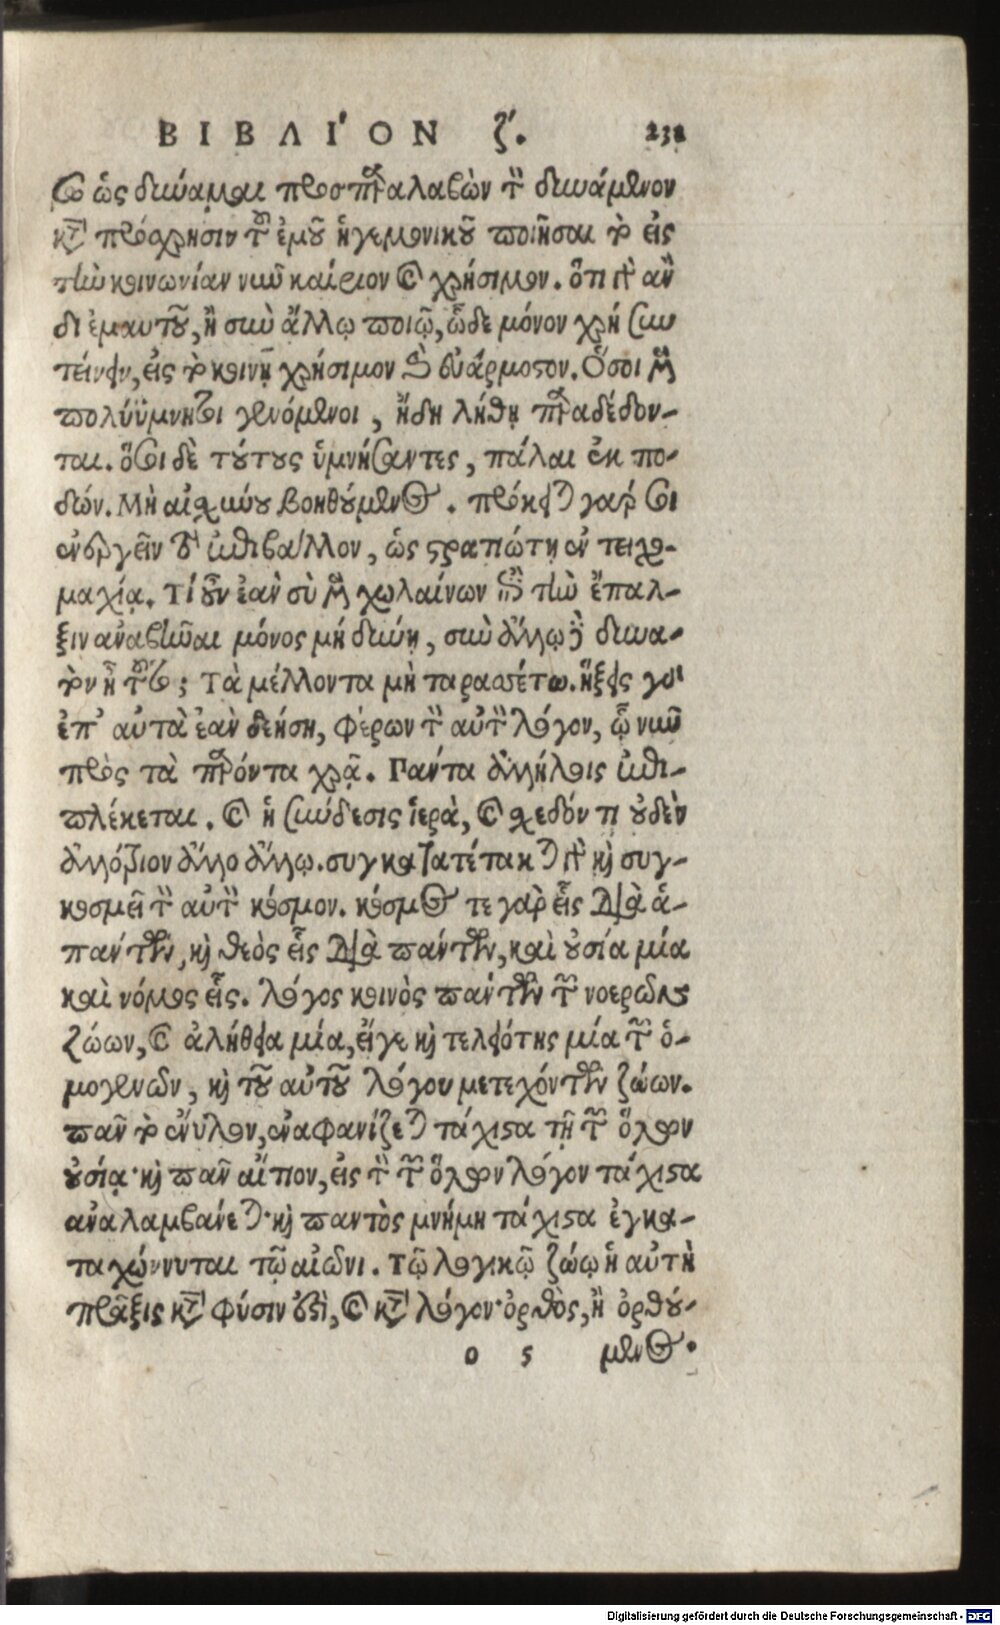 ΒΙΒΛΙʹΟΝ ζʹ. 231
ὡς δύναμαι προσπαραλαβὼν τὸν δυνάμενον
κατὰ πρόσχρησιν τοῦ ἐμοῦ ἡγεμονικοῦ ποιῆσαι τὸ εἰς
τὴν κοινωνίαν νῦν καίριον καὶ χρήσιμον. ὅτι γὰρ ἂν
δι ἐμαυτοῦ, ἢ σὺν ἄλλῳ ποιῶ, ὧδε μόνον χρὴ συν
τείνειν, εἰς τὸ κοινῇ χρήσιμον καὶ εὐάρμοστον. Ὅσοι μὲν
πολύϋμνητοι γενόμενοι, ἤδη λήθῃ παραδέδον-
ται. ὅσοι δὲ τούτους ὑμνήσαντες, πάλαι ἐκ πο-
δών. Μὴ αἰσχύνου βοηθούμενος. πρόκειται γάρ σοι
ἐνεργεῖν τὸ ἐπιβάλλον, ὡς στρατιώτῃ ἐν τειχο-
μαχίᾳ. Τί οὖν ἐὰν σὺ μὲν χωλαίνων ἐπὶ τὴν ἔπαλ-
ξιν ἀναβῆναι μόνος μὴ δύνῃ, σὺν ἄλλῳ δὲ δυνα-
τὸν ᾖ τοῦτο; Τὰ μέλλοντα μὴ ταρασσέτω. ἥξεις γὰρ
ἐπ’ αὐτὰ ἐὰν δεήσῃ, φέρων τὸν αὐτὸν λόγον, ᾧ νῦν
πρὸς τὰ παρόντα χρᾷ. Γάντα ἀλλήλοις ἐπι-
πλέκεται. καὶ ἡ σύνδεσις ἱερὰ, καὶ σχεδόν τι οὐδὲν
ἀλλότριον ἄλλο ἄλλῳ. συγκατατέτακται γὰρ καὶ συγ-
κοσμεῖ τὸν αὐτὸν κόσμον. κόσμος τε γὰρ εἷς διὰ ἁ-
πάντων, καὶ θεὸς εἷς διὰ πάντων, καὶ οὐσία μία
καὶ νόμος εἷς. λόγος κοινὸς πάντων τῶν νοερῶν
ζώων, καὶ ἀλήθεια μία, εἴγε καὶ τελειότης μία τῶν ὁ-
μογενῶν, καὶ τοῦ αὐτοῦ λόγου μετεχόντων ζώων.
πᾶν τὸ ἔνυλον, ἐναφανίζεται τάχιστα τῇ τῶν ὅλων
οὐσίᾳ· καὶ πᾶν αἴτιον, εἰς τὸν τῶν ὅλων λόγον τάχιστα
ἀναλαμβάνεται· καὶ παντὸς μνήμη τάχιστα ἐγκα-
ταχώννυται τῷ αἰῶνι. Τῷ λογικῷ ζώῳ ἡ αὐτὴ
πρᾶξις κατὰ φύσιν ἐστὶ, καὶ κατὰ λόγον· ὀρθὸς, ἢ ὀρθού-
ο 5 μενος.
Digitalisierung gefördert durch die Deutsche Forschungsgemeinschaft - DFG